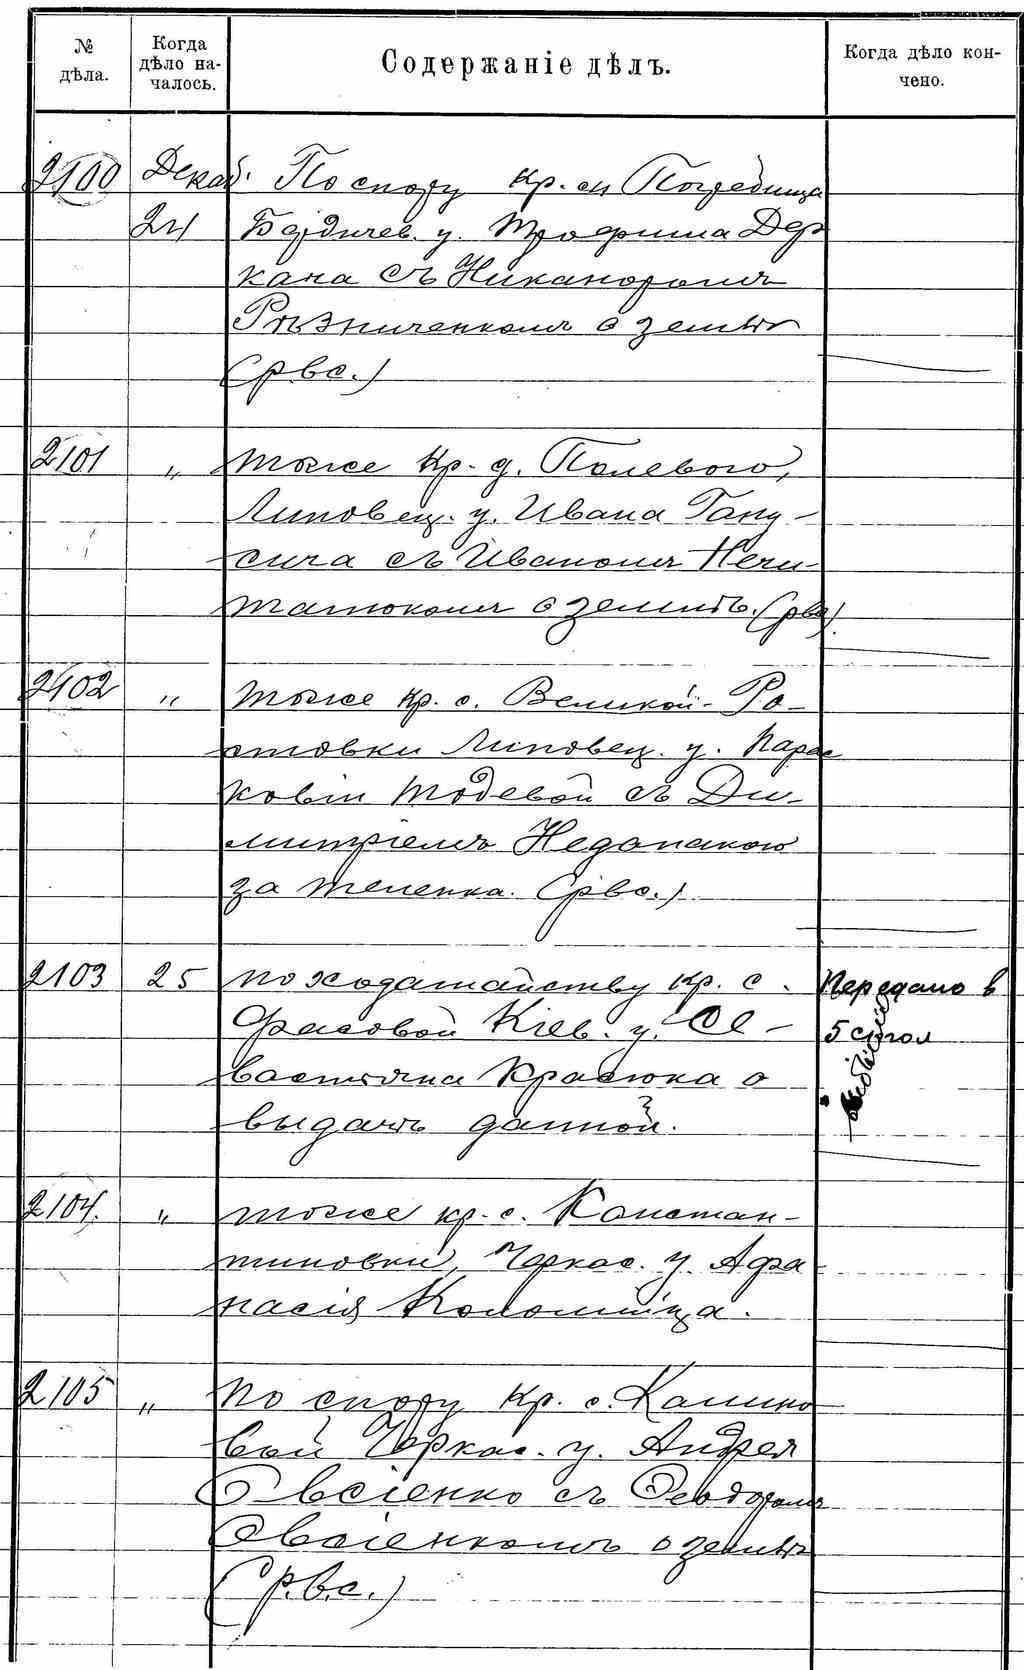 № дѣла.
Когда дѣло на-
чалось.
Содержаніе дѣлъ.
Когда дѣло кон-
чено.
2100 Декаб. По спору кр. м Погребища
24 Бердичев. у. Трофима Дер
кача съ Никаноромъ
Рѣзниченкомъ о землѣ
(р.в.с.)
2101 „ тоже кр. д. Полевого,
Липовец. у. Ивана Гану-
сича съ Иваномъ Нечи-
тайлюкомъ о землѣ. (рвс)
2102 „ тоже кр. с. Великой-Ро-
стовки Липовец. у. Парас
ковіи съ Ди-
митріемъ Недопакою
за теленка. (рвс.)
2103 25 по ходатайству кр. с. Передано в
Фасовой Кіев. у. Се- 5 стол
вастіяна Красюка о
выдачѣ данной.
2104. „ тоже кр. с. Констан-
тиновки, Черкас. у. Афа-
насія Коломійца.
2105 „ по спору кр. с. Калино
вой Черкас. у. Андрея
Овсіенко съ Феодоромъ
Овсіенкомъ о землѣ
(р.в.с.)